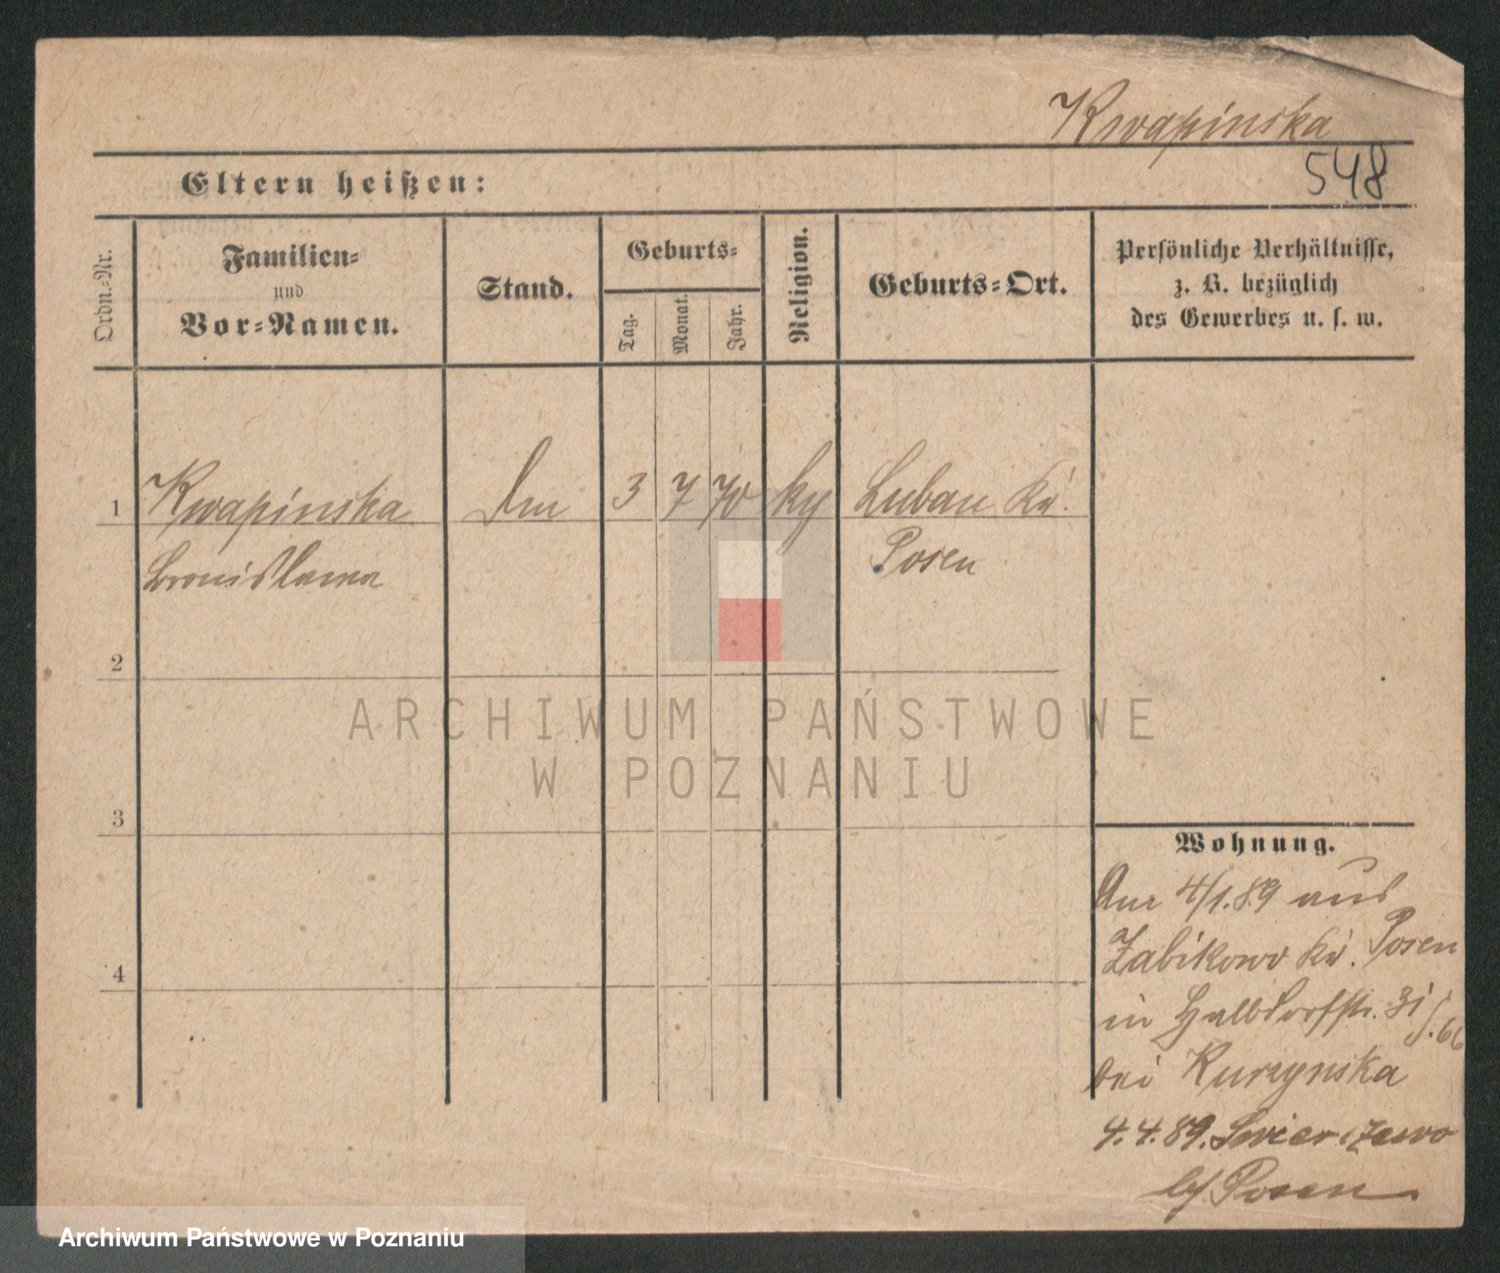 Kwapinska
548
Eltern heißen:
Ordn.-Nr.
Familien-
und
Vor-Namen.
Stand.
Geburts-
Tag.
Monat.
Jahr.
Religion.
Geburts-Ort.
Persönliche Verhältnisse,
z. B. bezüglich
des Gewerbes u. s. w.
1 Kwapinska 3 7 70 Luban Kr.
Bronislawa Posen
2
ARCHIWUM PAŃSTWOWE
W POZNANIU
3
Wohnung.
Am 4/1.89 aus
Zabikowo Kr. Posen
in Halbdorfstr. 31
bei Kurzynska
4
4.4.89.
b/ Posen
Archiwum Państwowe w Poznaniu